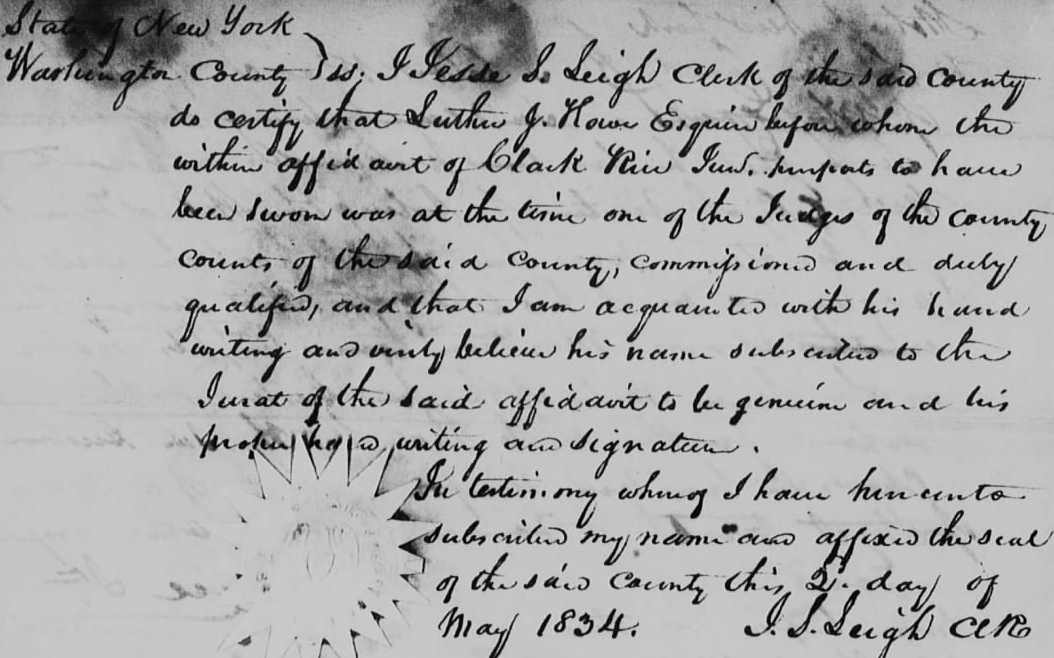 State of New York
Washington County } ss; I Jesse S. Leigh Clerk of the said County
do certify that Luther J. Howe Esquire before whom the
within affidavit of Clark Rice Jun. purports to have
been sworn was at the time one of the Judges of the county
courts of the said county, commissioned and duly
qualified, and that I am acquainted with his hand
writing and verily believe his name subscribed to the
Jurat of the said affidavit to be genuine and his
proper hand writing and signature.
In testimony whereof I have hereunto
subscribed my name and affixed the seal
of the said county this 2d. day of
May 1834. J. S. Leigh Clk